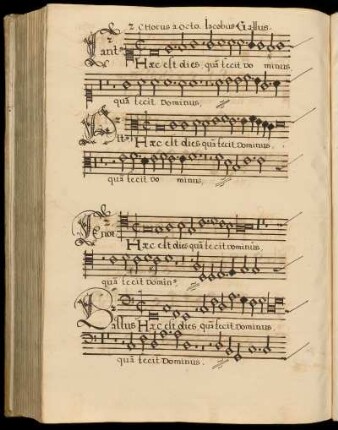 2. Chorus a octo. Iacobus Gallus.
Cant⁹
Hæc est dies quā fecit Do minus
quā fecit Dominus.
Alt⁹
Hæc est dies quā fecit Dominus.
quā fecit Do minus.
Tenor
Hæc est dies quā fecit Dominus.
quā fecit Domin⁹
Bassus Hæc est dies quā fecit Dominus
quā fecit Dominus.